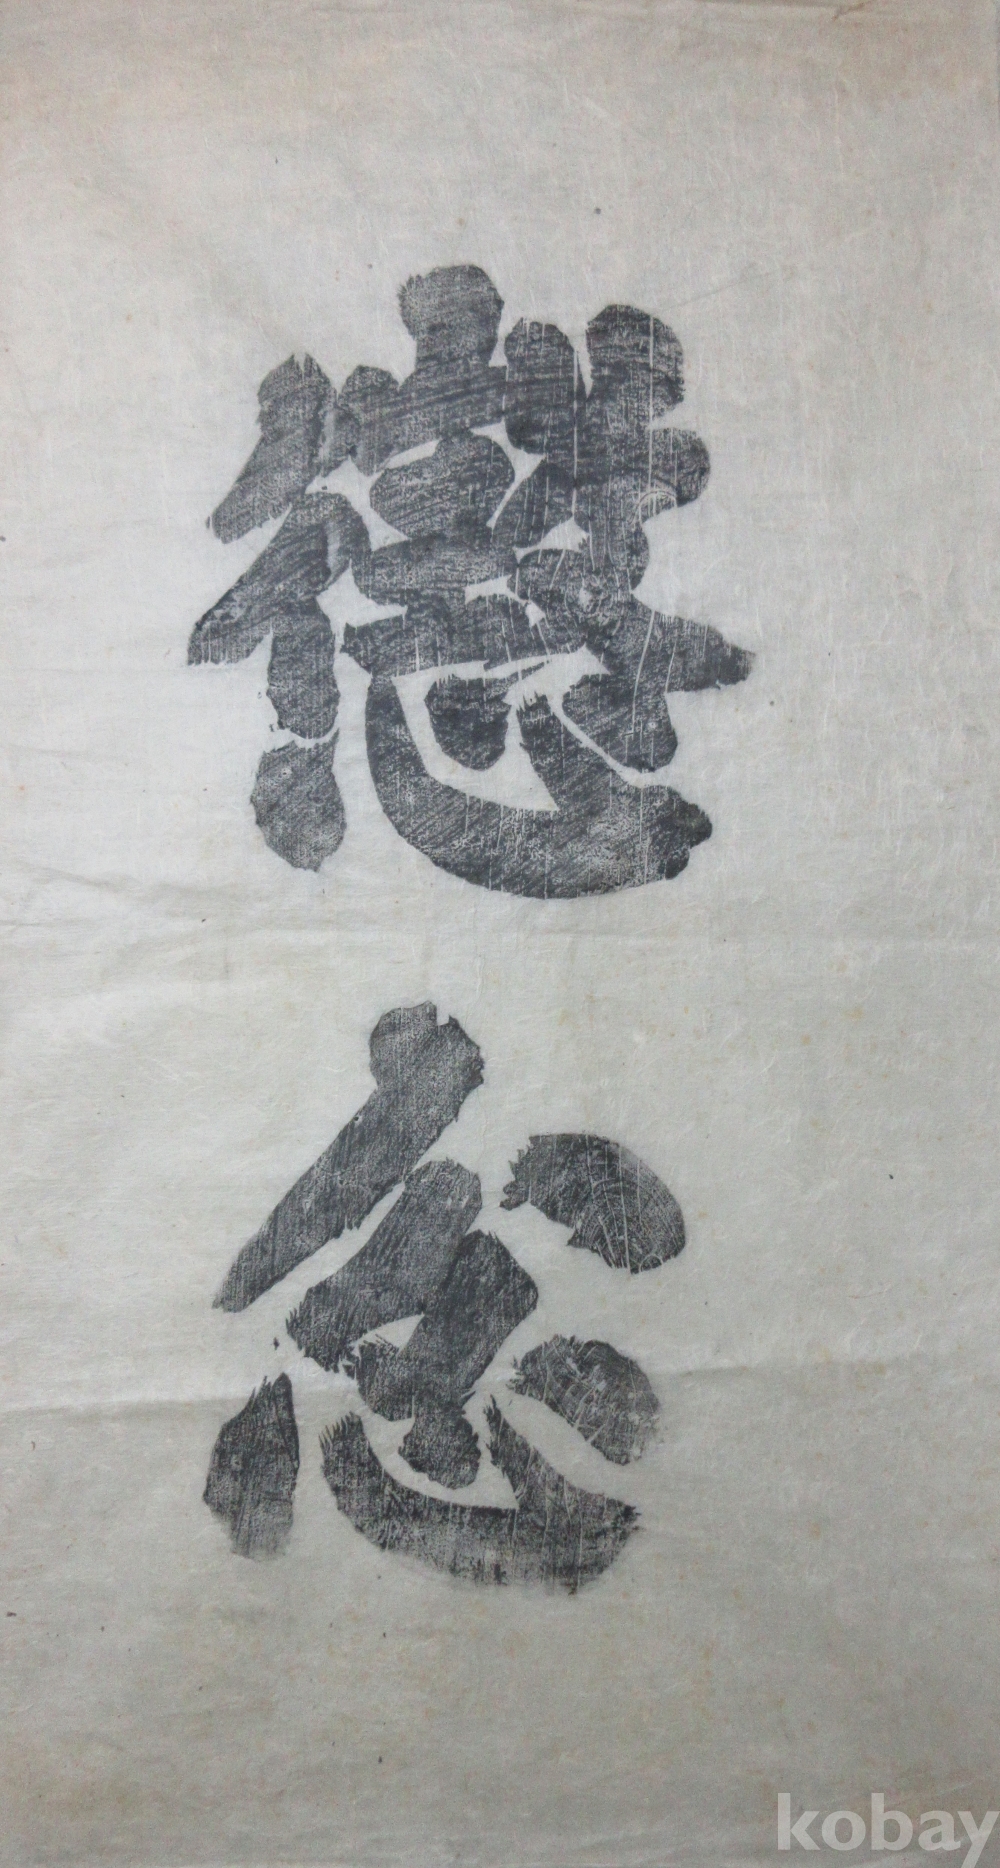 懲
忿
kobay